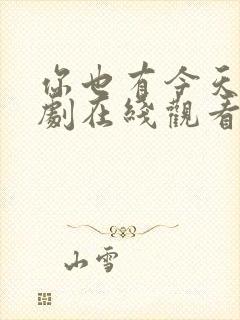 你也有今天
劇在綫觀看
山雪